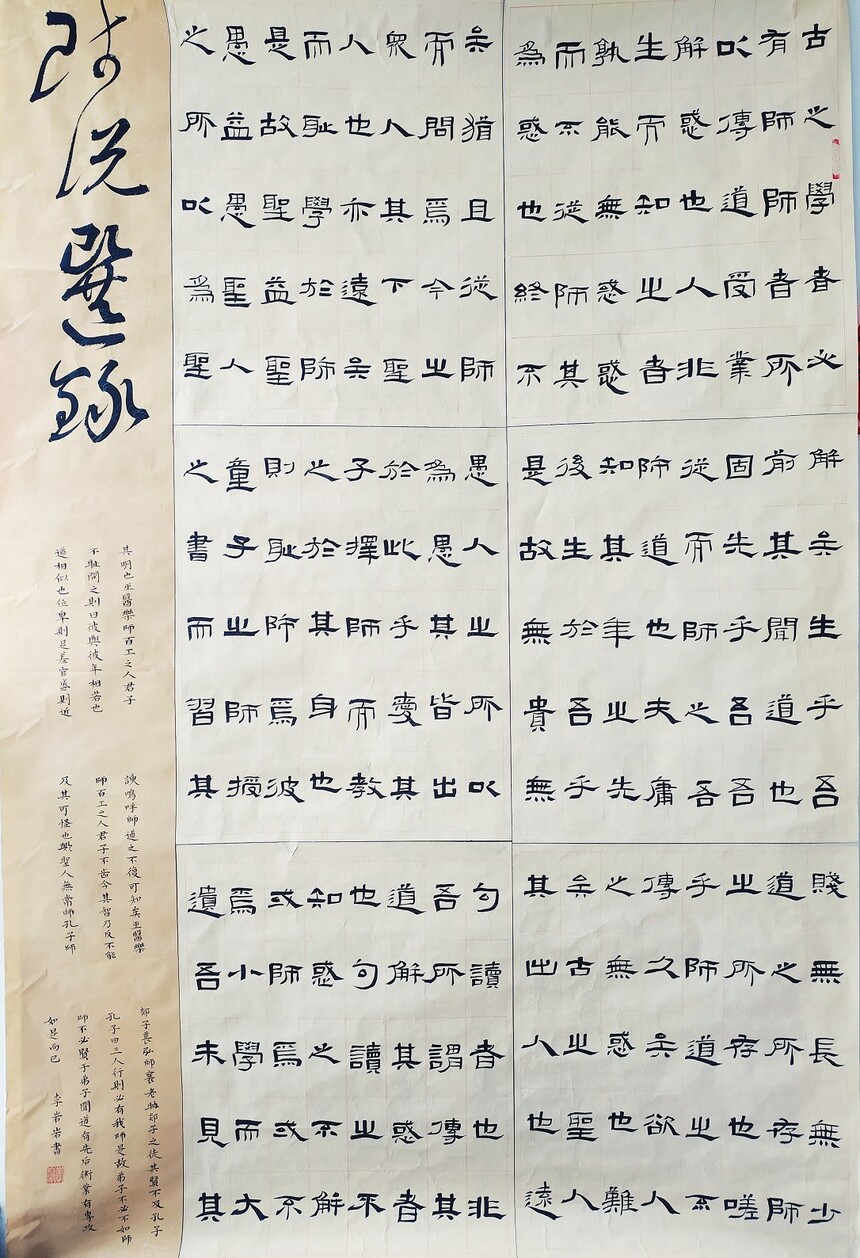 古之學者必
有師師者所
以傳道受業
解惑也人非
生而知之者
孰能無惑惑
而不從師其
為惑也終不
解矣生乎吾
前其聞道也
固先乎吾吾
從而師之吾
師道也夫庸
知其年之先
後生於吾乎
是故無貴無
賤無長無少
道之所存師
之所存也嗟
乎師道之不
傳久矣欲人
之無惑也難
矣古之聖人
其出人也遠
矣猶且從師
而問焉今之
衆人其下聖
人也亦遠矣
而耻學於師
是故聖益聖
愚益愚聖人
之所以為聖
愚人之所以
為愚其皆出
於此乎愛其
子擇師而教
之於其身也
則耻師焉彼
童子之師授
之書而習其
句讀者也非
吾所謂傳其
道解其惑者
也句讀之不
知惑之不解
或師焉或不
焉小學而大
遺吾未見其
師说選錄
其明也巫醫樂師百工之人君子
不耻問之則曰彼與彼年相若也
道相似也位卑則足羞官盛則近
諛嗚呼師道之不復可知矣巫醫樂
師百工之人君子不齒今其智乃反不能
及其可怪也歟聖人無常師孔子師
郯子萇弘師襄老聃郯子之徒其賢不及孔子
孔子曰三人行則必有我師是故弟子不必不如師
師不必賢于弟子聞道有先后術業有專攻
如是而已 李岩岩書